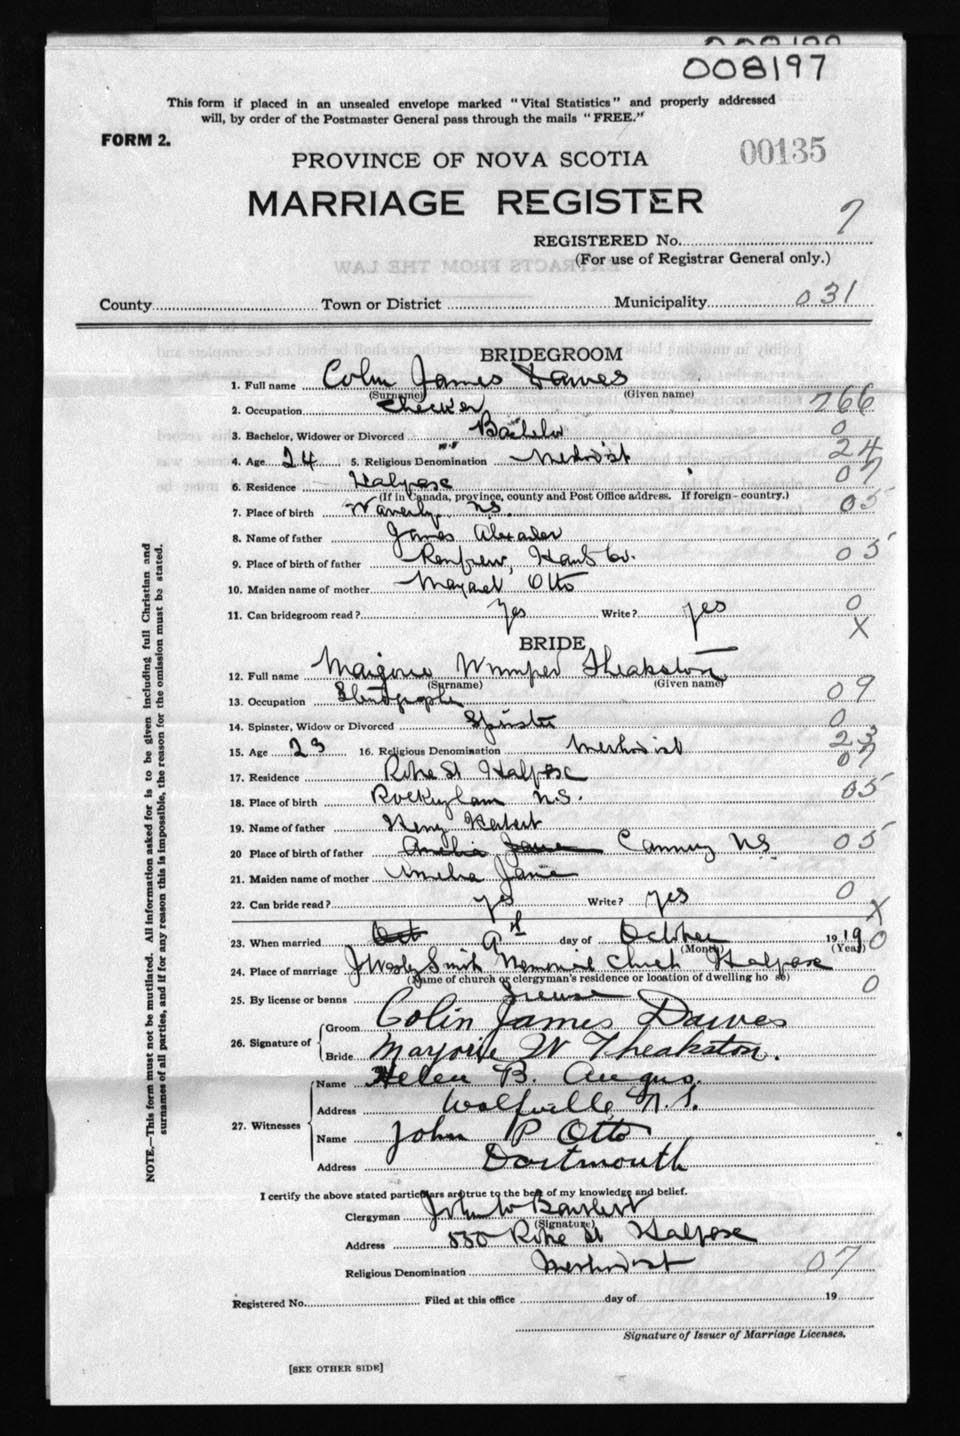 008197
This form if placed in an unsealed envelope marked "Vital Statistics" and properly addressed
will, by order of the Postmaster General pass through the mails "FREE."
FORM 2.
PROVINCE OF NOVA SCOTIA
00135
MARRIAGE REGISTER
REGISTERED No. 7
(For use of Registrar General only.)
County Town or District Municipality 031
BRIDEGROOM
1. Full name Colin James Dawes
(Surname) (Given name)
2. Occupation Checker 266
3. Bachelor, Widower or Divorced Bachelor 0
4. Age 24 5. Religious Denomination Methodist 24
6. Residence Halifax 07
(If in Canada, province, county and Post Office address. If foreign - country.)
7. Place of birth Waverly N.S. 05
8. Name of father James Alexander
9. Place of birth of father Renfrew, Hants Co. 05
10. Maiden name of mother Margaret Otto
11. Can bridegroom read? Yes Write? yes 0
X
BRIDE
12. Full name Marjorie Theakston
(Surname) (Given name)
13. Occupation Stenographer 09
14. Spinster, Widow or Divorced Spinster 0
15. Age 23 16. Religious Denomination Methodist 23
17. Residence St Halifax 07
18. Place of birth Rockingham N.S. 05
19. Name of father Henry Herbert
20 Place of birth of father Amelia Jane Canning N.S. 05
21. Maiden name of mother Amelia Jane
22. Can bride read? yes Write? yes 0
X
23. When married Oct 9th day of October 1919 0
(Month) (Year)
24. Place of marriage J Wesly Smith Memorial Church Halifax
(Name of church or clergyman's residence or location of dwelling house)
25. By license or banns License 0
26. Signature of Groom Colin James Dawes
Bride Marjorie W Theakston.
27. Witnesses Name Helen B. Angus.
Address Wolfville, N.S.
Name John P Otto
Address Dartmouth
I certify the above stated particulars are true to the best of my knowledge and belief.
Clergyman John W Bartlett
(Signature)
Address St Halifax
Religious Denomination Methodist 07
Registered No. Filed at this office day of 19
Signature of Issuer of Marriage Licenses.
[SEE OTHER SIDE]
NOTE.—This form must not be mutilated. All information asked for is to be given including full Christian and
surnames of all parties, and if for any reason this is impossible, the reason for the omission must be stated.